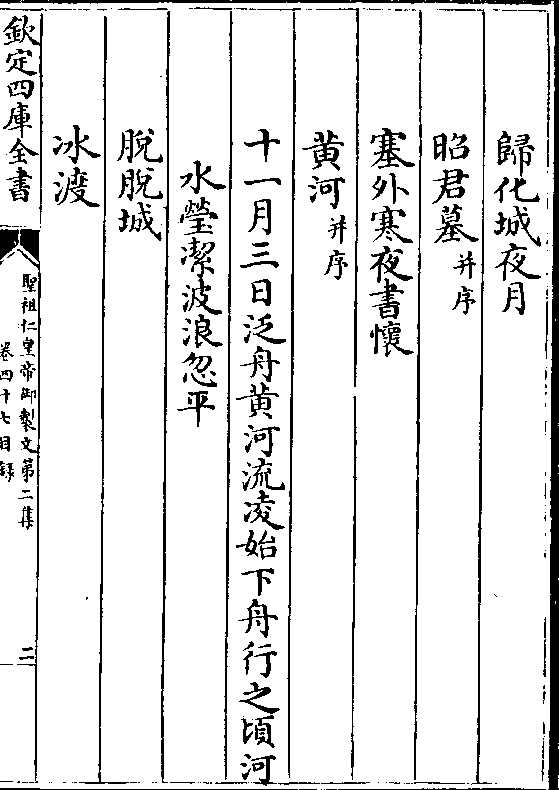 歸化城夜月
昭君墓并序
塞外寒夜書懷
黄河并序
十一月三日泛舟黄河流凌始下舟行之頃河
水瑩潔波浪忽平
脱脱城
冰渡
欽定四庫全書
聖祖仁皇帝御製文第二集
卷四十七目錄
二